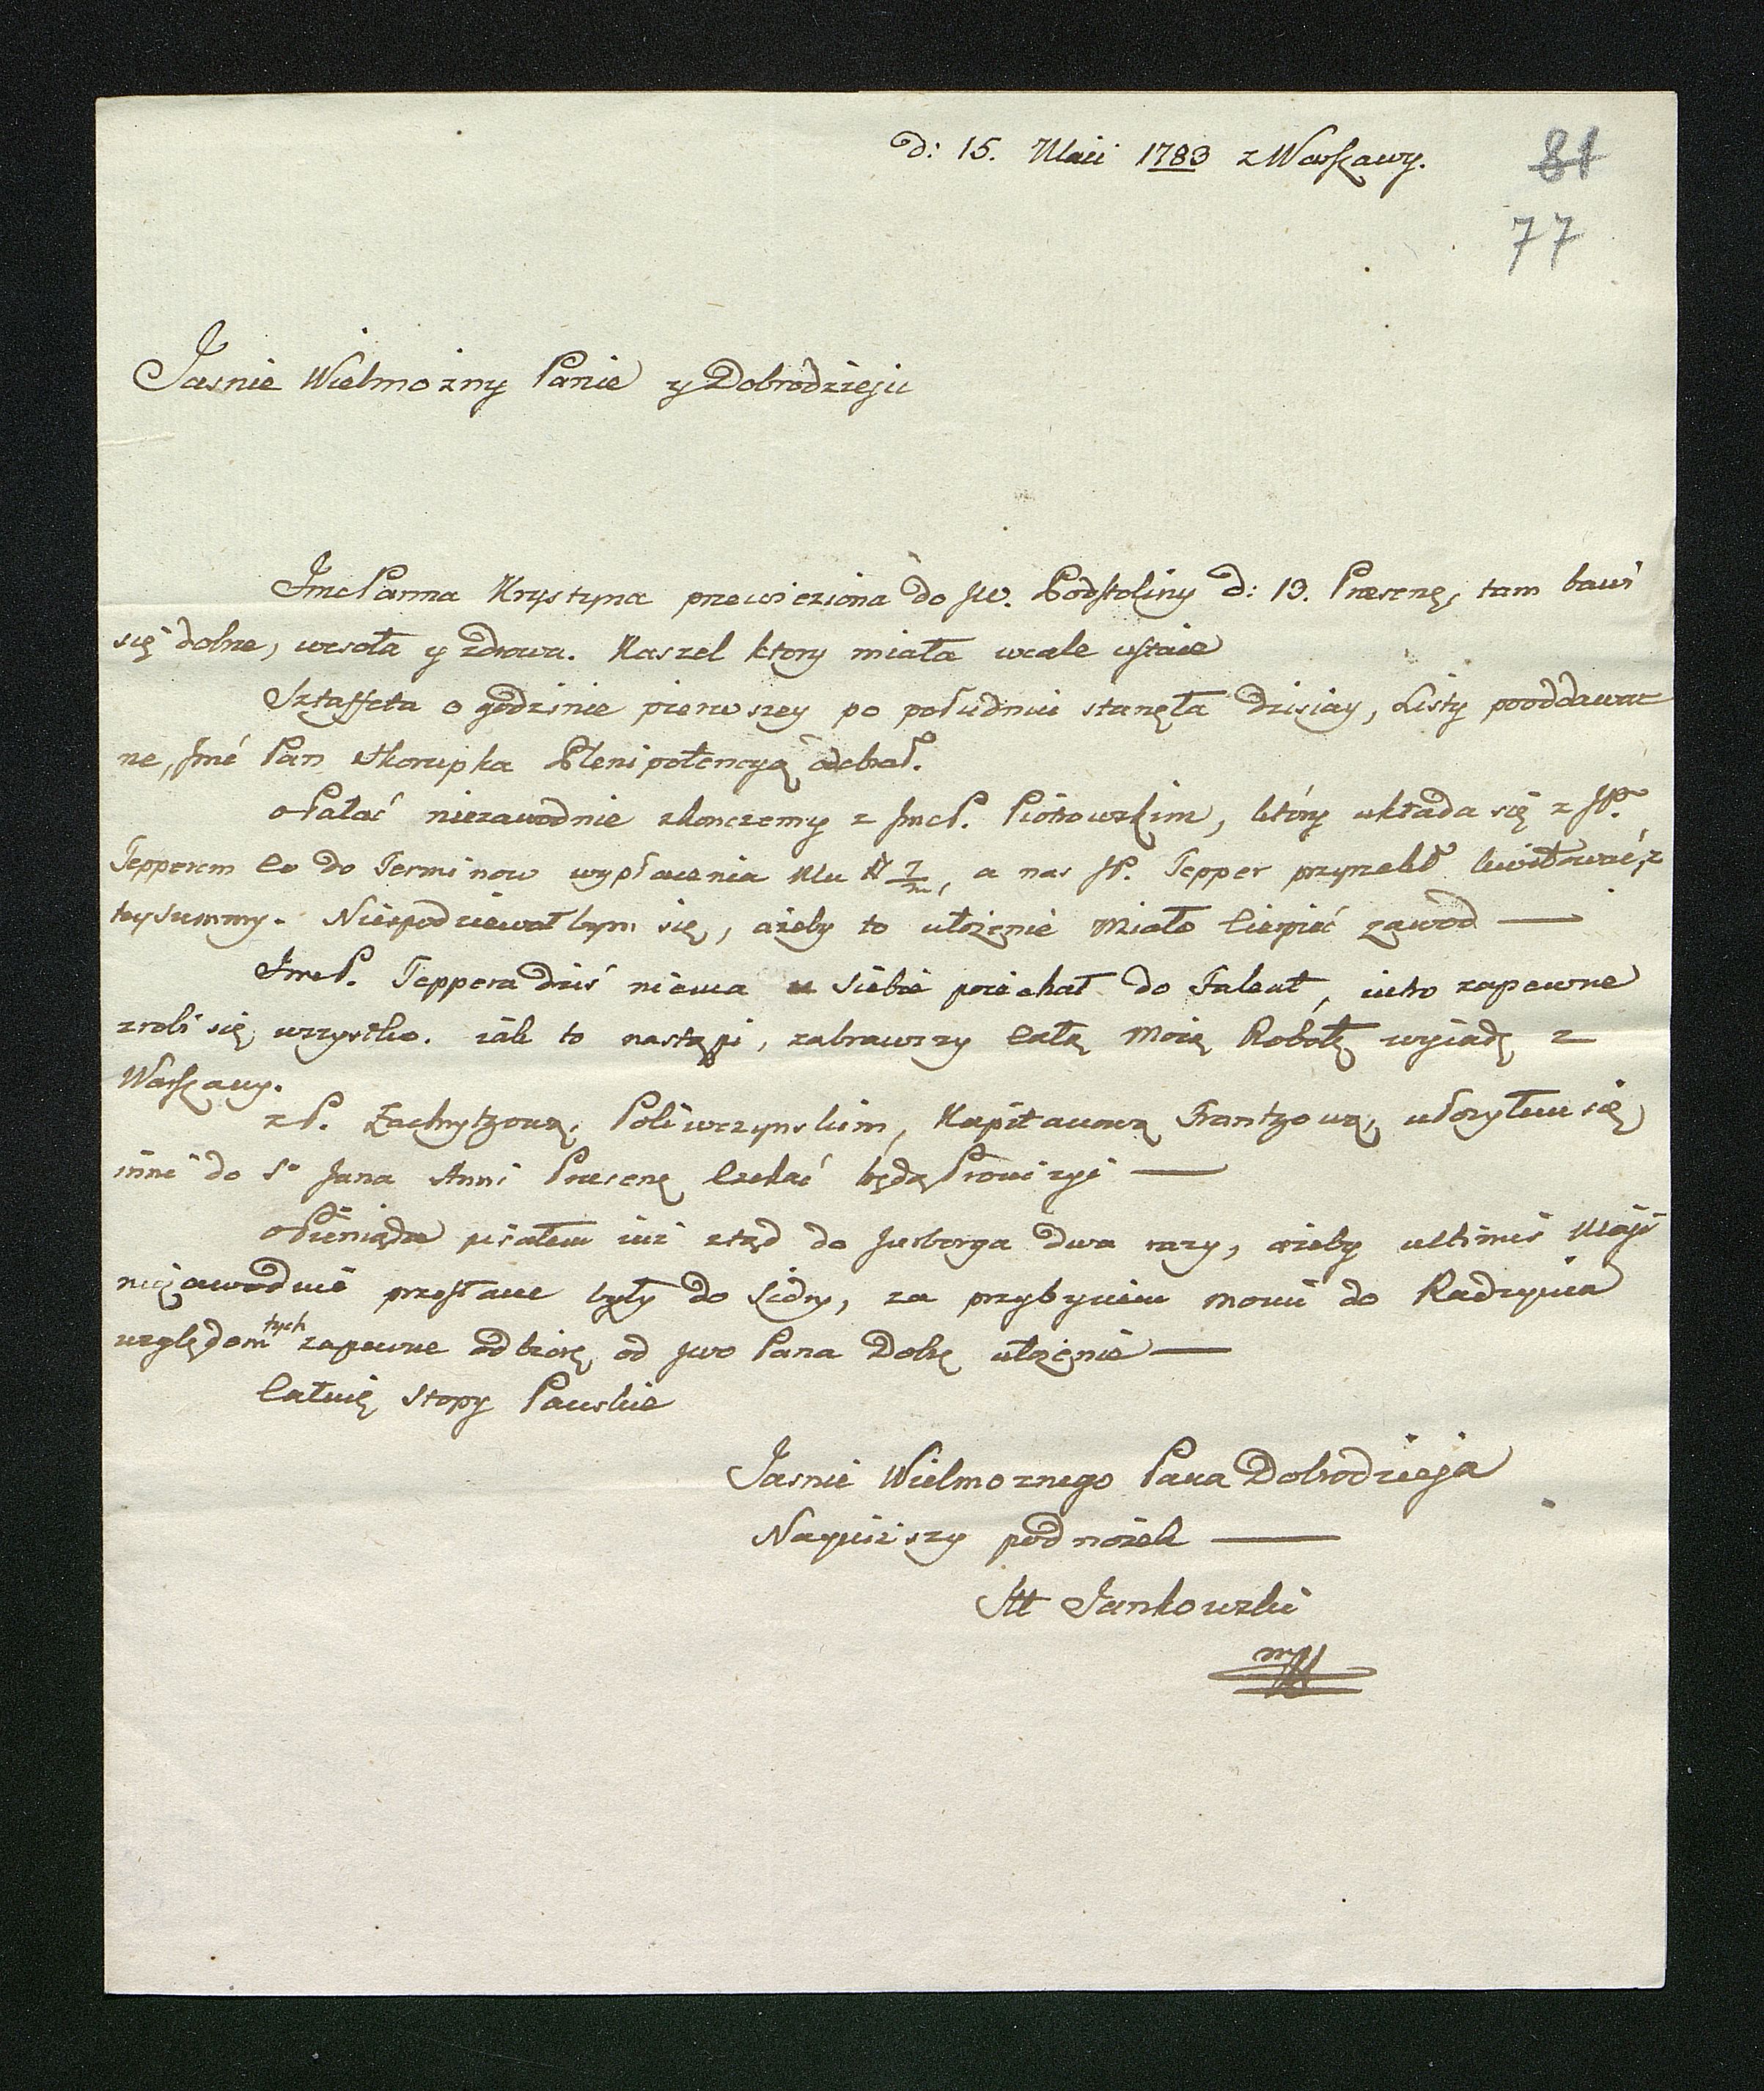 d: 15. Maii 1783 z Warszawy.
81
77
Jasnie Wielmozny Panie y Dobrodzieju
JmcPanna Krystyna przewieziona do JW. Podstoliny d: 13. Præsenę, tam bawi
się dobrze, wesoła y zdrowa. Kaszel ktory miała wcale ustaie
Sztaffeta o godzinie pierwszey po południu stanęła dzisiay, Listy pooddawa=
ne, Jmć Pan Skorupka Plenipotencyą odebrał.
o Pałać niezawodnie skonczemy z JmcP. Piotrowskim, ktόry układa się z JP.
Tepperem Co do Terminow wypłacenia Mu # 7/m, a nas JP. Tepper przyrzekł kwitować, z
tey Summy. Niespodziewałbym się, ażeby to ułożenie Miało Cierpieć zawod —
JmcP. Teppera dziś niema u Siebie poiechał do Falent, iutro zapewne
zrobi się wszystko. iak to nastąpi, zabrawszy Całą Moię Robotę wyiadę z
Warszawy.
z P. Zachrytzową, Poliwczynskim, Kapitanową Frantzową, ułozyłem się,
inni do So Jana Anni Præsenę Czekać będą Prowizyi —
o Pieniądze pisałem iuż ztąd do Jurborga dwa razy, ażeby ultimis Maji
niezawodnie przesłane były do Sidry, za przybyciem moim do Radzynia
względem tych zapewne odbiorę od JWo Pana Dobrę ułożenie —
Całuię Stopy Panskie
Jasnie Wielmoznego Pana Dobrodzieja
Nayniższy podnożek —
M Jankowski
mp